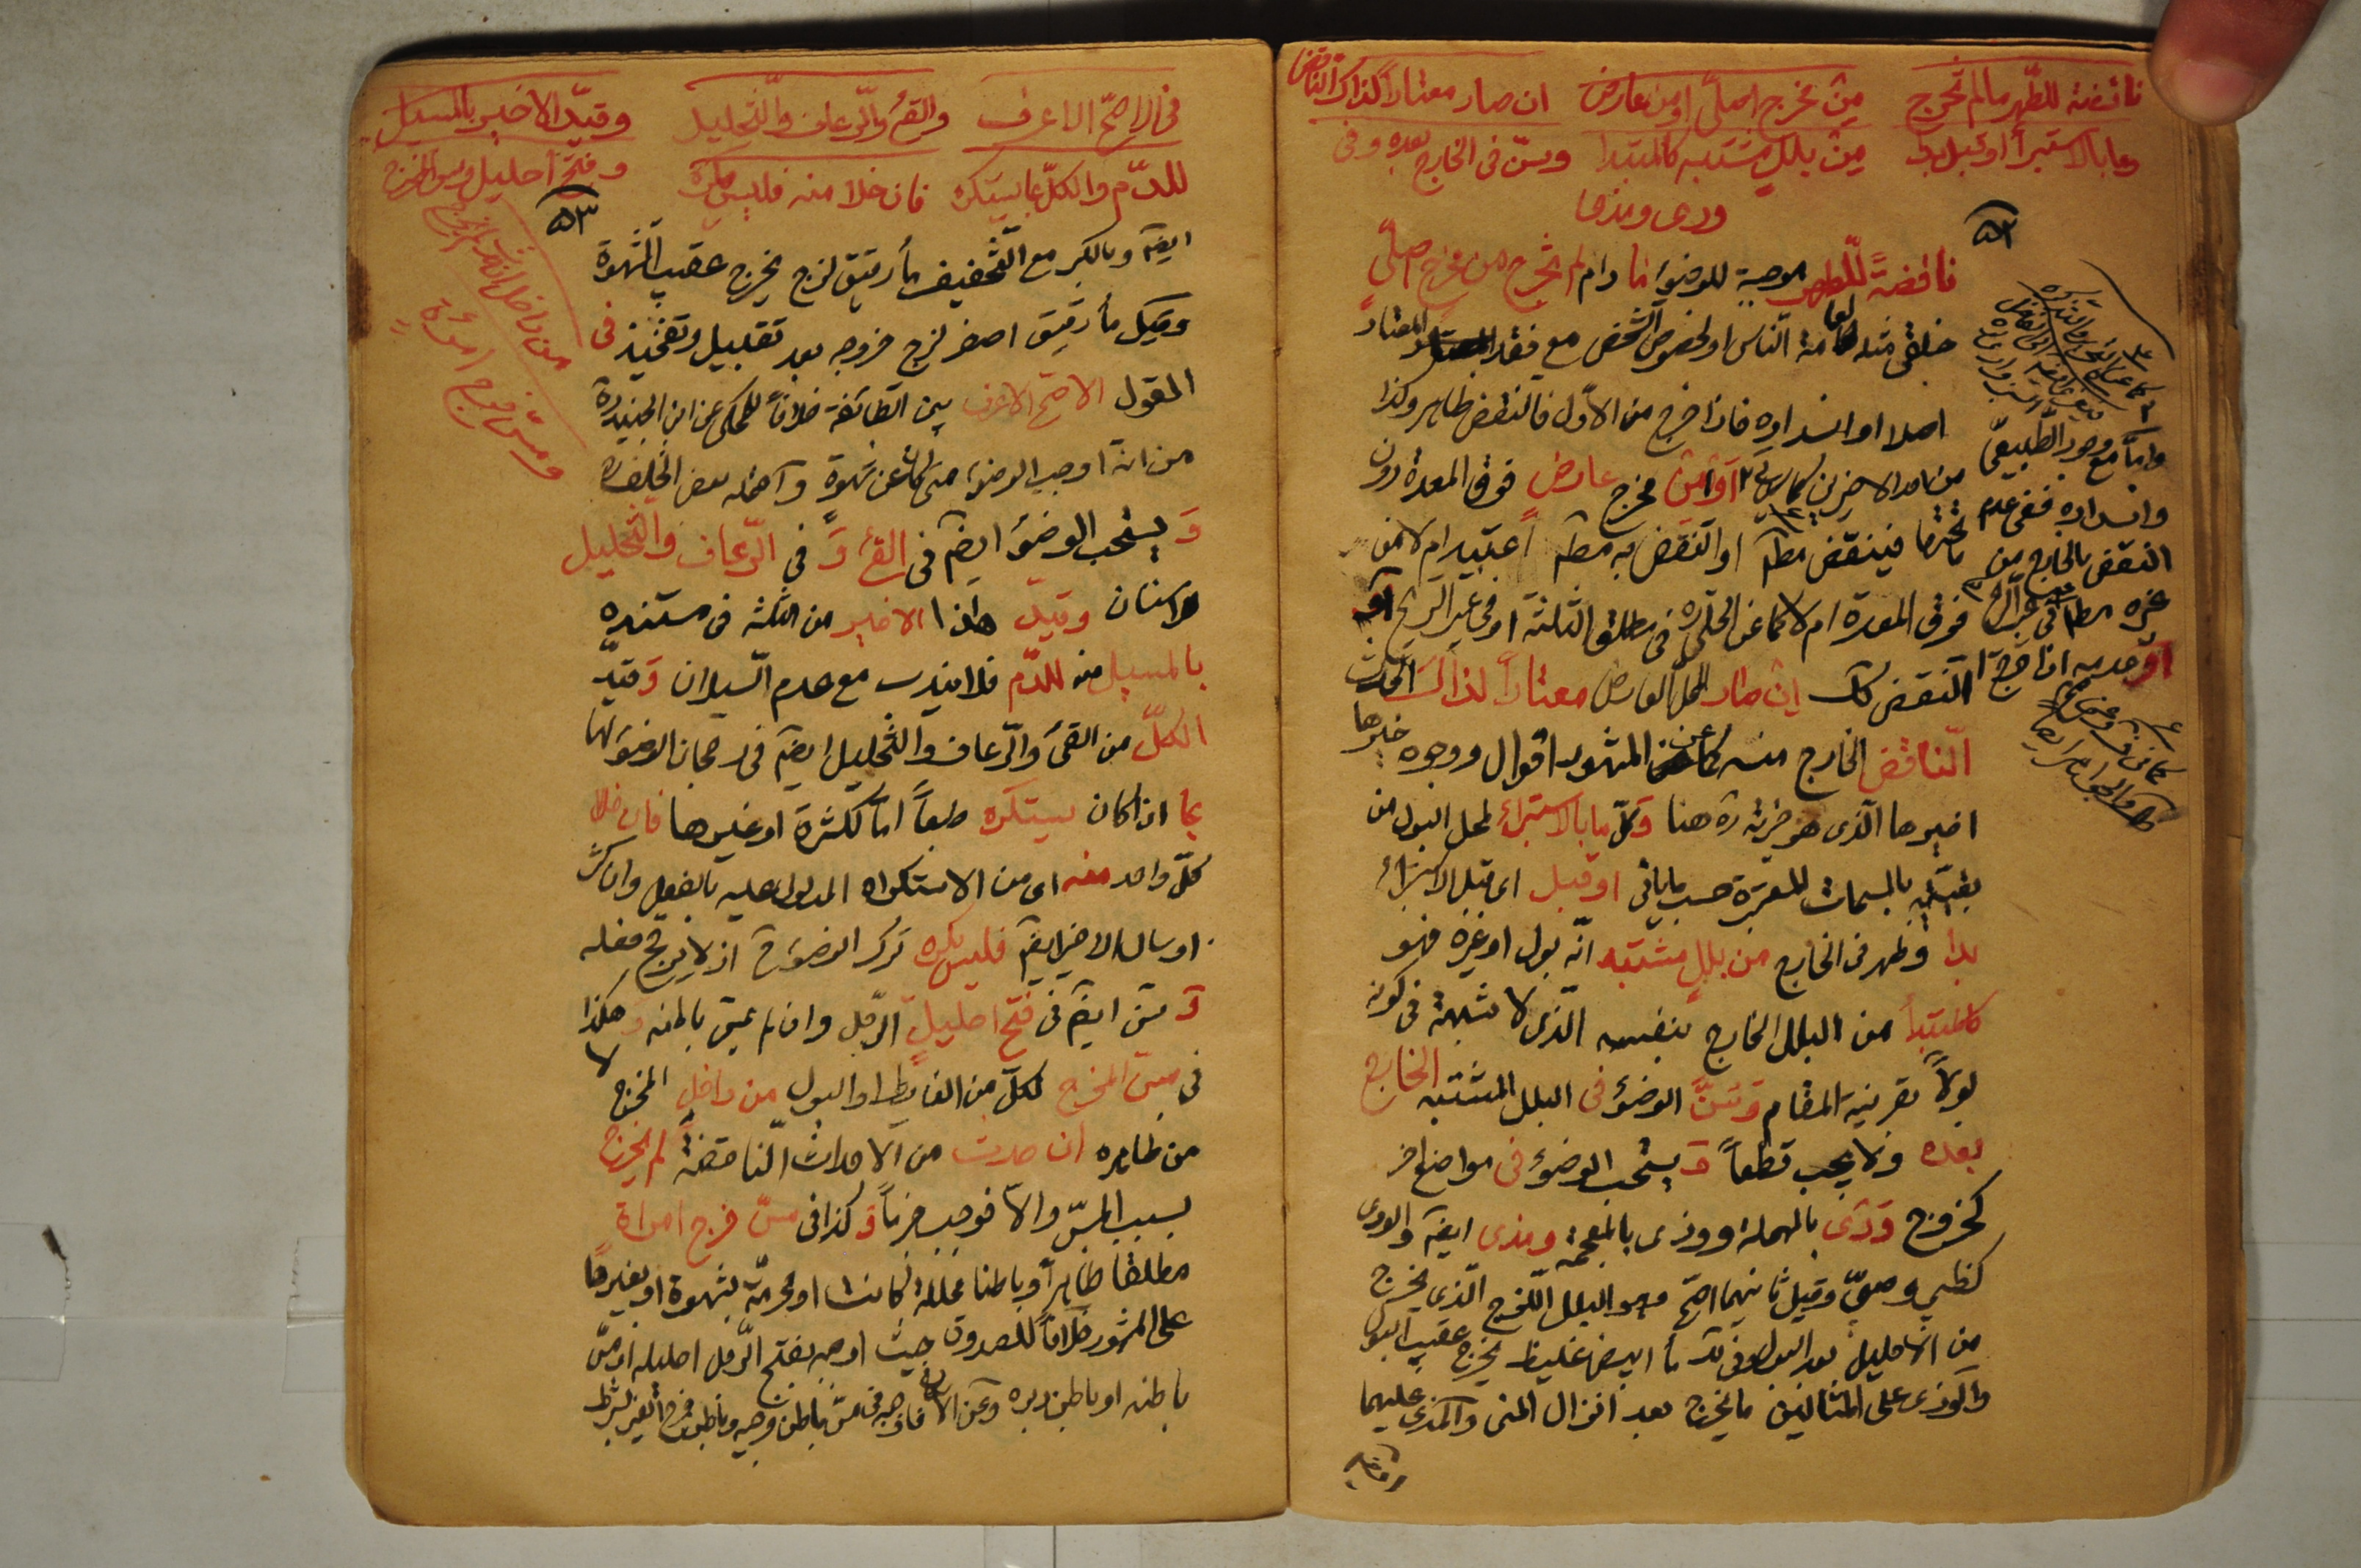 ناقضة للطّهر مالم تخرج من مخرج اصليّ او من عارض ان صار معتاداً كذاك الناقض
وما بالاستبرأ او قبل بدا من بلل مشتبه كالمبتدا وسنّ فى الخارج بعده وفى
ودى ومذى
٥٢
ناقضةً للّطهر موجبة للوضوء ما دام لم تخرج من مخرج اصليّ
خلقى مثله لعامة النّاس او لخصوص الشخص مع فقد المعتاد
اصلا او انسداده فاذا خرج من الاوّل فالنقض ظاهر وكذا
من احد الاخيرين كما سيأتى او من مخرج عارض فوق المعدة دون
ما تحتها فينقض مطلقا او النقض به مطلقا اعتيد ام لا من
فوق المعدة ام لا كما عن الحلى فى مطلق الثلثة او فى غير الريح او
النقض كك ان صار المحل العارض معتاداً لذاك الحدث
النّاقض الخارج منه كما عن المشهور اقوال ووجوه خيرها
اخيرها الّذى هو خيرته ره هنا وكلّ ما بالاستبراء لمحل البول من
بقيّته بالمسحات المعتبرة حسب ما يأتى او قبل اى قبل الاستبراء
بدا وظهر فى الخارج من بللٍ مشتبه انّه بول او غيره فهو
كالمبتدأ من البلل الخارج بنفسه الّذى لا شبهة فى كونه
بولاً بقرينة المقام وسنّ الوضوء فى البلل المشتبه الخارج
بعده ولا يجب قطعاً ويستحب الوضوء فى مواضع اخر
كخروج ودى بالمهملة ووذى بالمعجمة ومذى ايضا والودى
كظبى وصبىّ وقيل ثانيهما اصحّ وهو البلل اللّزج الّذى يخرج
من الاحليل بعد البول وفى مأ ابيض غليظ يخرج عقيب البول
والوذى على المثالين ما يخرج بعد انزال المنى والمذى عليهما
وامّا مع وجود الطّبيعىّ
وانسداده ففى عدم
النقض بالخارج من
غيره مطلقا
فى الاصحّ الاعرف والقئ والرّعاف والتّخليل وقيّد الاخير بالمسيل
للدّم والكلّ بما يستكره فان خلا منه فليس يكره وفتح احليل ومسّ المخرج
من داخل ان حدث لم يخرج
ومسّ فرج امرءة
٥٣
ايضا وبالكسر مع التّخفيف مأ رقيق لزج يخرج عقيب الشّهوة
وقيل مأ رقيق اصفر لزج خروجه بعد تقبيل وتفخيذ فى
المقول الاصحّ الاعرف بين الطائفة خلافاً للمحكى عن ابن الجنيد ره
من انّه اوجب الوضوء متى كان عن شهوة
وَ يستحب الوضوء ايضا فى القئ وَ فى الرّعاف والتّخليل
للاسنان وقيّد هذا الاخير من الثلثة فى مستنده
بالمسيل منه للدّم فلا يندب مع عدم السّيلان وَقيّد
الكلّ من القئ والرّعاف والتّخليل ايضا فى رجحان الوضوء لها
بما اذا كان يستكره طبعاً امّا لكثرة او غيرها فان خلا
كلّ واحد منه اى من الاستكراه المدلول عليه بالفعل وان كثر
او سال الاخير ايضا فليس يكره ترك الوضوء ح اذ لا يرجح فعله
وَ سنّ ايضا فى فتح احليلٍ الرّجل وان لم يمسّ باطنه وَهكذا
فى مسّ المخرج لكلّ من الغايط او البول من داخلِ المخرج لا
من ظاهره ان حدث من الاحداث النّاقضة لم يخرج
بسبب المسّ والاّ فوجب جزماً وَ كذا فى مسّ فرج امرأةٍ
مطلقا ظاهراً وباطنا محللة كانت او محرمة بشهوة او بغيرها
على المشهور خلافاً للصدوق حيث اوجبه بفتح الرّجل احليله او مسّ
باطنه او باطن دبره وعن الاسكافى فاوجبه فى مسّ باطن فرجيه وباطن فرج الغير بشرط